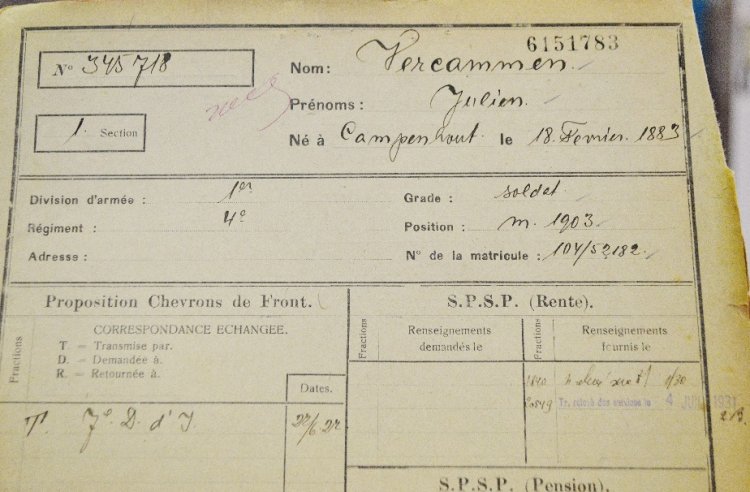 6151783
N° 345718
Nom: Vercammen
Prénoms: Julien.
1. Section
Né à Campenhout. le 18. Fevrier. 1883
Division d'armée : 1er
Grade : soldat.
Régiment : 4e
Position : m. 1903
Adresse :
N° de la matricule : 104/52182.
Proposition Chevrons de Front.
S.P.S.P. (Rente).
Fractions
CORRESPONDANCE ECHANGÉE.
T = Transmise par.
D. = Demandée à.
R. = Retournée à.
Dates.
Fractions
Renseignements
demandés le
Fractions
Renseignements
fournis le
T 7e D. d'I 22/6.22
1/30
20549 4 1931
213.
S.P.S.P. (Pension).